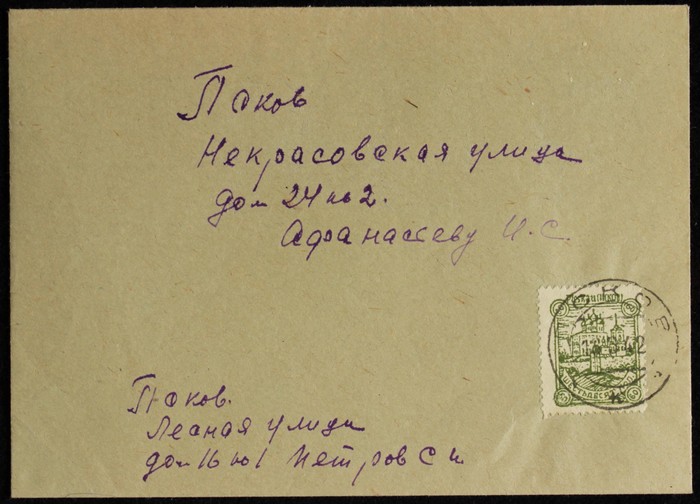 Псков
Некрасовская улица
дом 24 кв 2.
Афанасеву И. С.
60 60
60 60
Псков.
Лесная улица
дом 16 кв 1 Петров С н